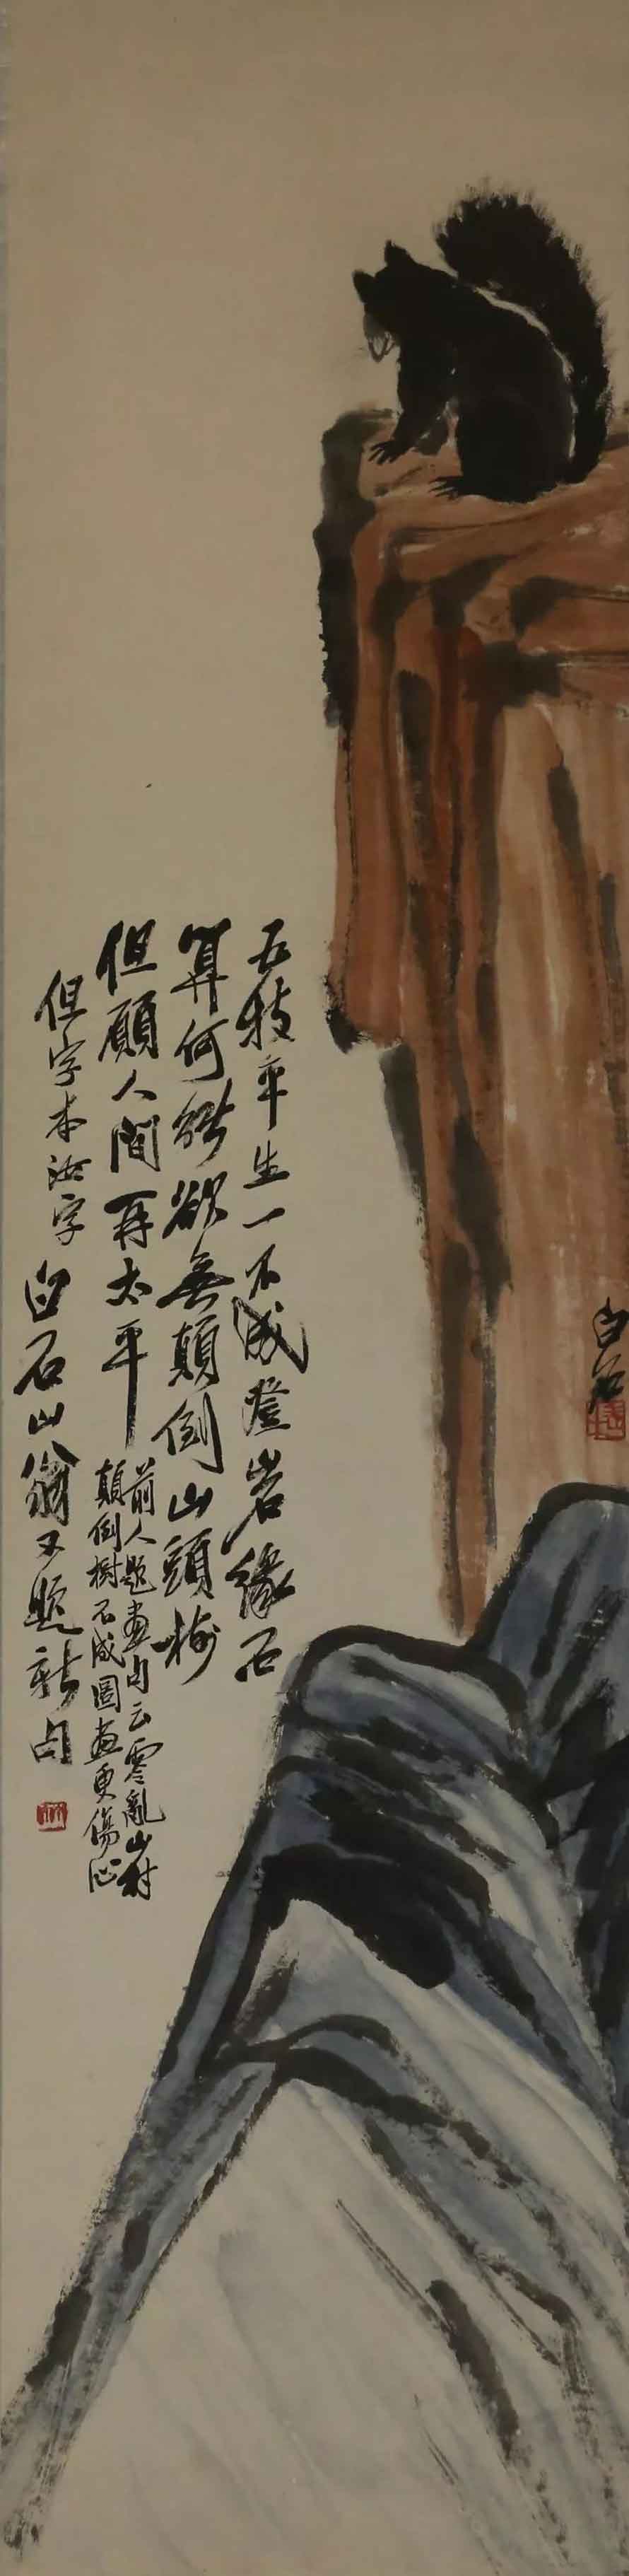 五技平生一不成登岩緣石
算何能欲無顛倒山頭樹
但願人間再太平
前人題畫句云零亂山村
顛倒樹不成圖畫更傷心
但字本汝字白石山翁又題新句
白石